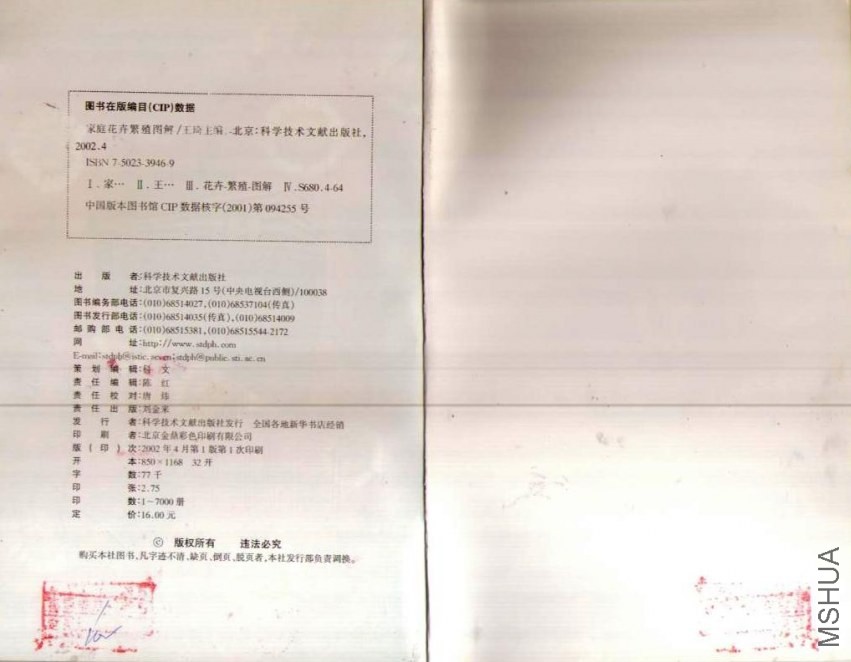 图书在版编目(CIP)数据
家庭花卉繁殖图解/王琦主编.-北京:科学技术文献出版社,
2002.4
ISBN 7-5023-3946-9
Ⅰ.家… Ⅱ.王… Ⅲ.花卉-繁殖-图解 Ⅳ.S680.4-64
中国版本图书馆CIP数据核字(2001)第094255号
出版者:科学技术文献出版社
地址:北京市复兴路15号(中央电视台西侧)/100038
图书编务部电话:(010)68514027,(010)68537104(传真)
图书发行部电话:(010)68514035(传真),(010)68514009
邮购部电话:(010)68515381,(010)68515544-2172
网址:http://www.stdph.com
E-mail:stdph@istic.ac.cn;stdph@public.sti.ac.cn
策划编辑: 文
责任编辑:陈 红
责任校对:唐
责任出版:刘金来
发行者:科学技术文献出版社发行 全国各地新华书店经销
印刷者:北京金鼎彩色印刷有限公司
版(印)次:2002年4月第1版第1次印刷
开本:850×1168 32开
字数:77千
印张:2.75
印数:1~7000册
定价:16.00元
© 版权所有 违法必究
购买本社图书,凡字迹不清、缺页、倒页、脱页者,本社发行部负责调换。
MSHUA